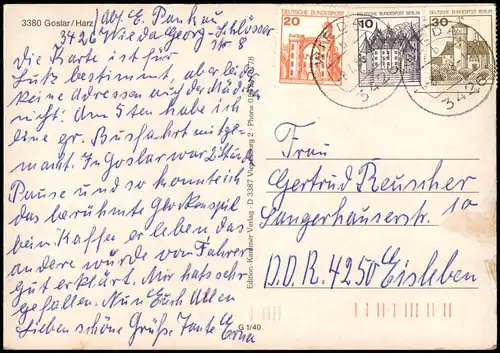 3380 Goslar/Harz
Abs. E. Pankau
3426 Wieda Georg-Schlösser
Str 8
Die Karte ist für
Lutz bestimmt, aber leider
keine Adressen auf der
nicht. Am 5ten habe ich
eine gr. Busfahrt mitge-
macht. In Goslar war 2 Stunde
Pause und so konnte ich
das berühmte Glockenspiel
beim Kaffee er leben das
andere wurde vom Fahrer
gut erklärt. Mir hats sehr
gefallen. Nun Euch Allen
Lieben schöne Grüße Tante Erna
Edition Kammer Verlag - D 3387 Vienenburg 2 - Phone
G 1/40
DEUTSCHE BUNDESPOST
20
DEUTSCHE BUNDESPOST BERLIN
10
DEUTSCHE BUNDESPOST
30
WIEDA
3426
WIEDA
3426
Frau
Gertrud Reuscher
Sangerhäuserstr. 10
D.D.R. 4250 Eisleben